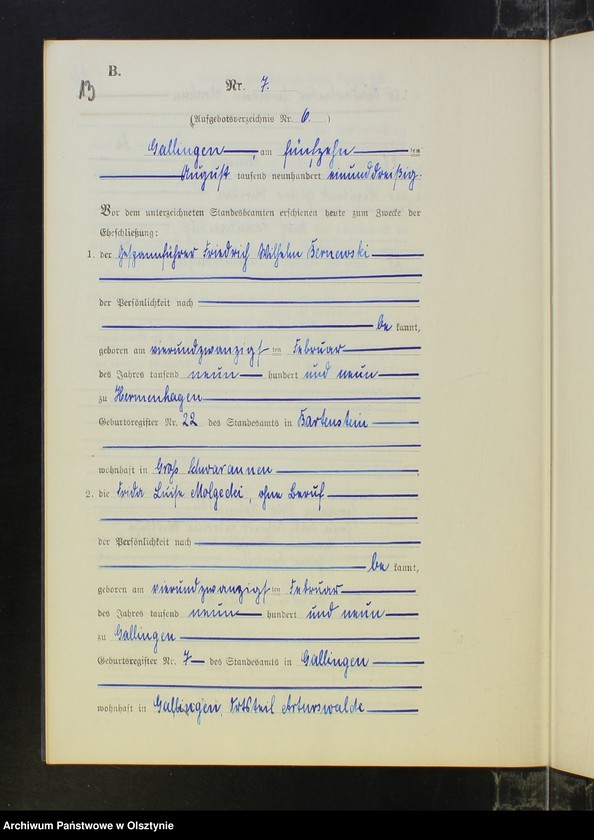 B.
13
Nr. 7.
(Aufgebotsverzeichnis Nr. 6.)
Gallingen, am fünfzehn ten
August tausend neunhundert einunddreißig.
Vor dem unterzeichneten Standesbeamten erschienen heute zum Zwecke der
Eheschließung:
1. der Gespannführer Friedrich Wilhelm
der Persönlichkeit nach
be kannt,
geboren am vierundzwanzigs ten Februar
des Jahres tausend neun hundert und neun
zu Hermenhagen
Geburtsregister Nr. 22 des Standesamts in Bartenstein
wohnhaft in Groß Schwaraunen
2. die Frida Luise Molgedei, ohne Beruf
der Persönlichkeit nach
be kannt,
geboren am vierundzwanzigs ten Februar
des Jahres tausend neun hundert und neun
zu Gallingen
Geburtsregister Nr. 7 des Standesamts in Gallingen
wohnhaft in Gallingen, Ortsteil Arturswalde
Archiwum Państwowe w Olsztynie